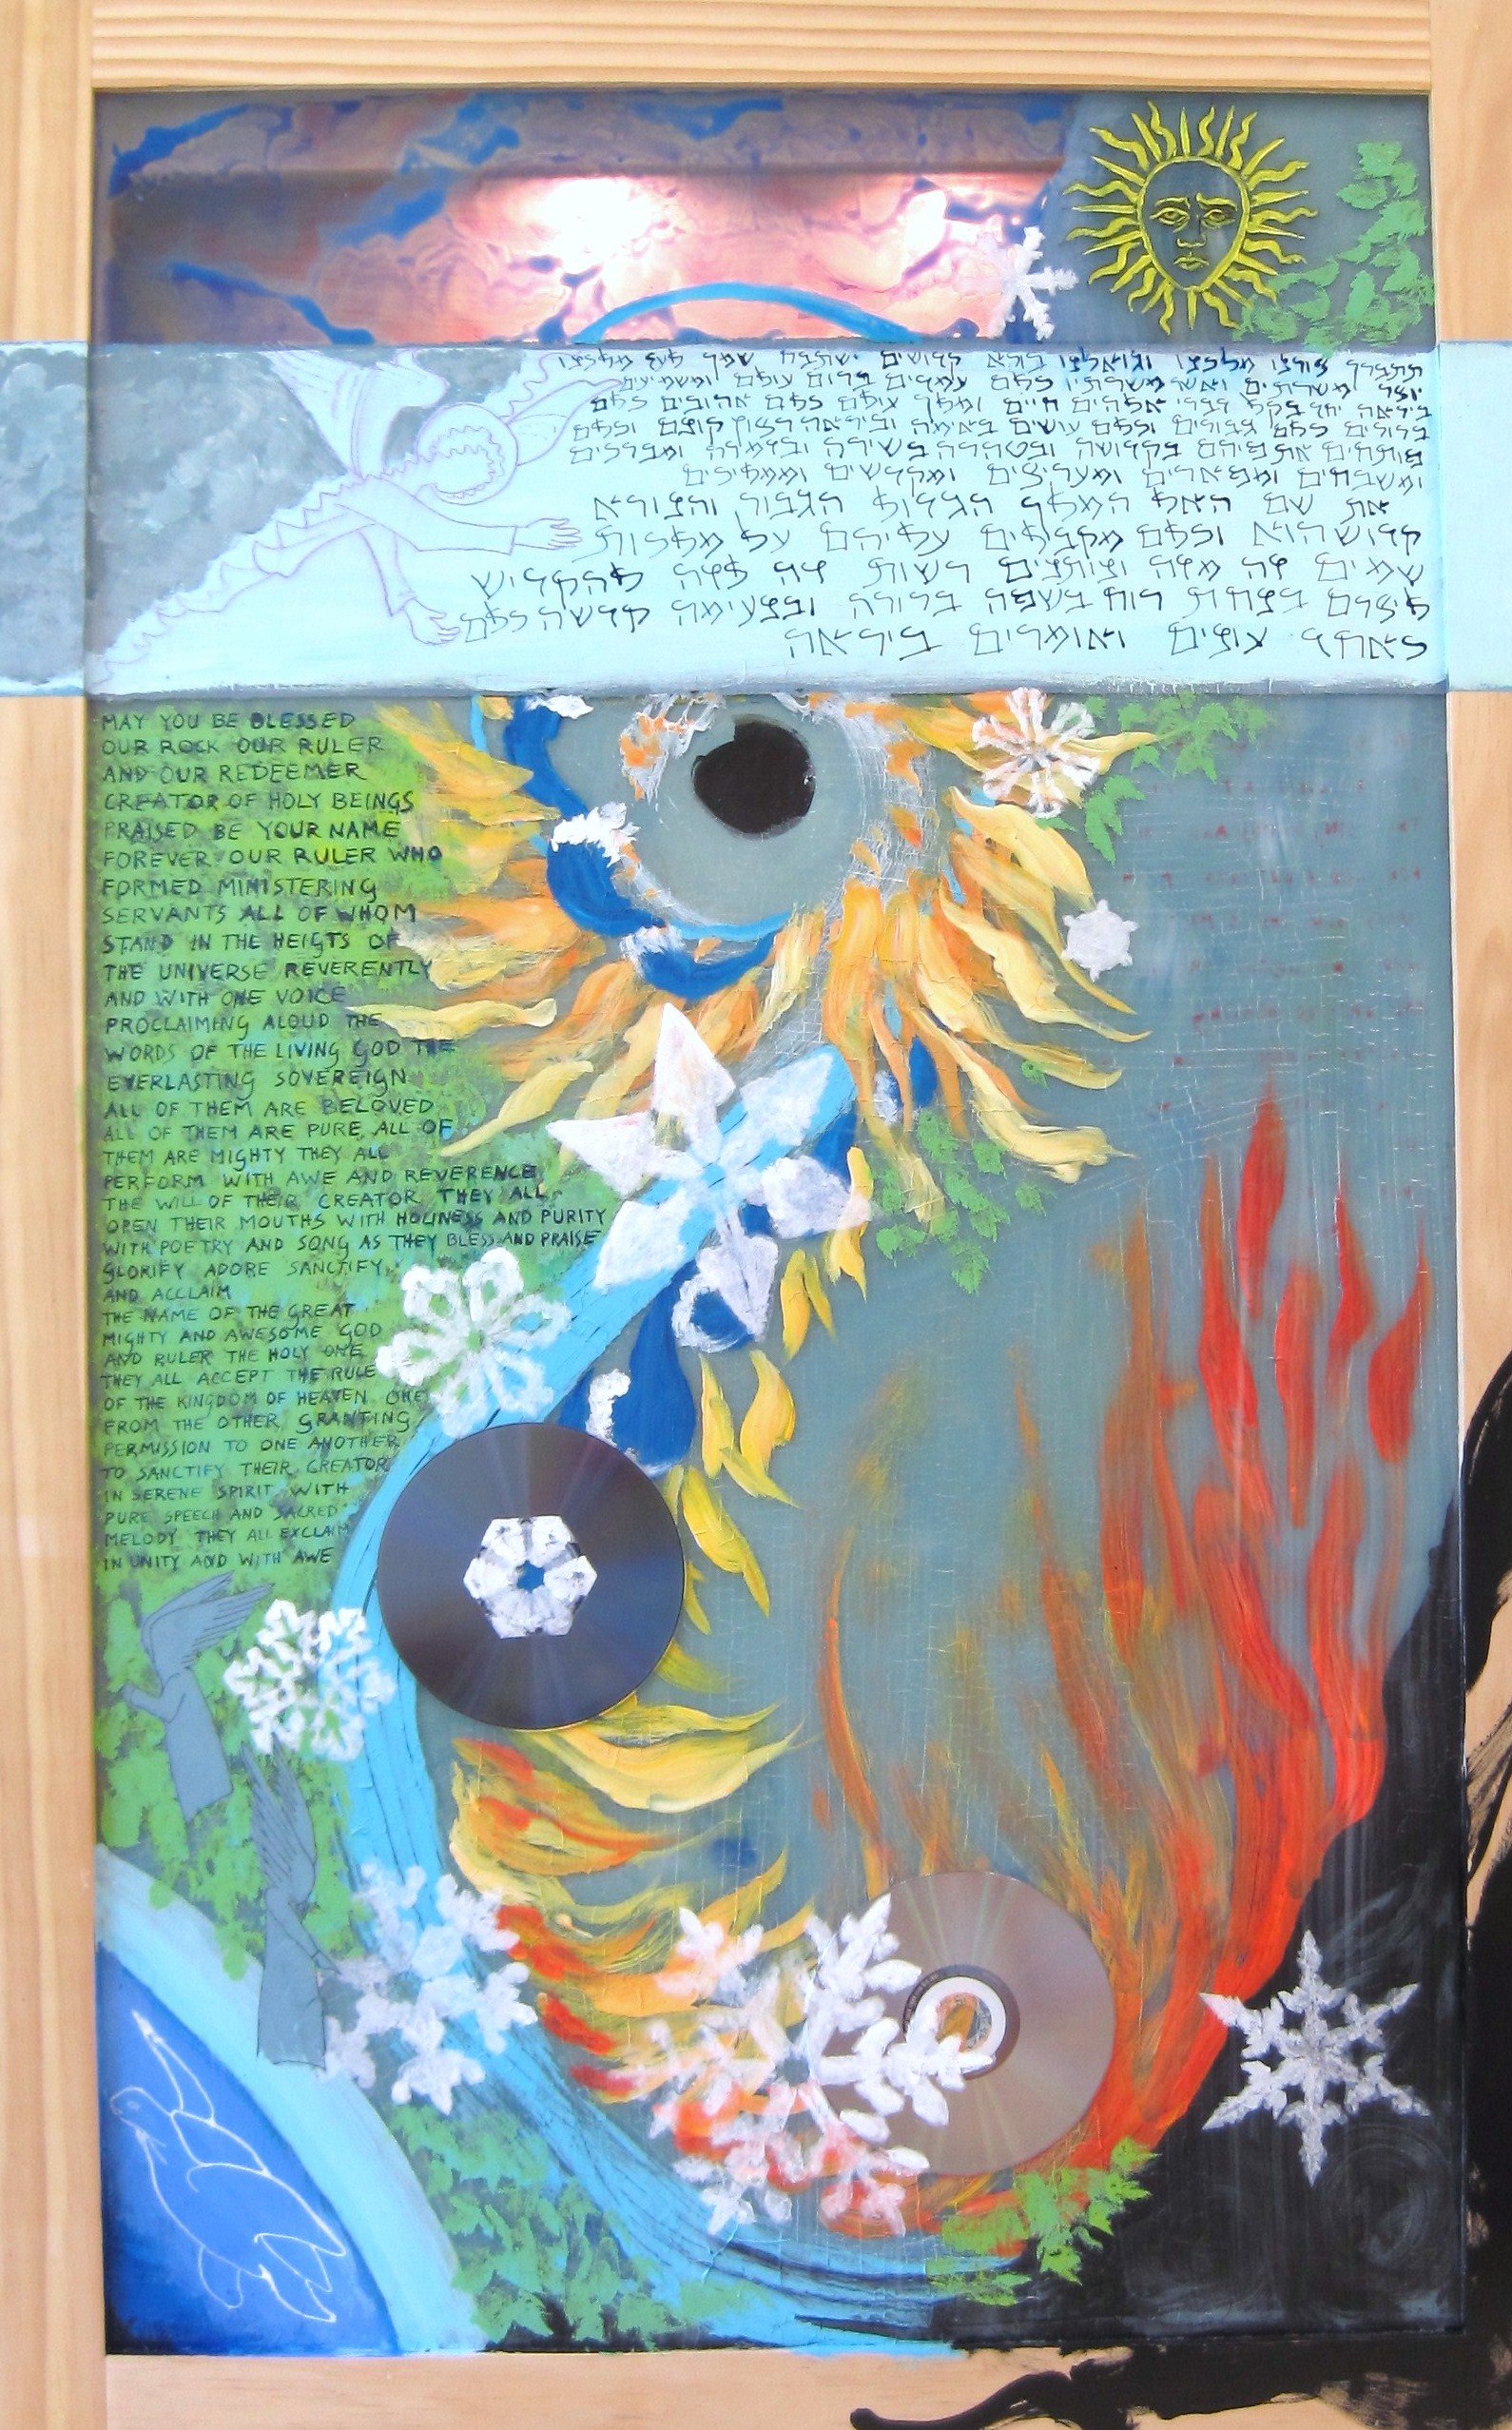 תתברך צורנו מלכנו וגואלנו בורא קדושים ישתבח שמך לעד מלכנו
יוצר משרתים ואשר משרתיו כלם עמדים ברום עולם ומשמיעים
ביראה יחד בקל דברי אלהים חיים ומלך עולם כלם אהובים כלם
ברורים כלם גבורים וכלם עושים באימה וביראה רצון קונם וכלם
פותחים את פיהם בקדושה ובטהרה בשירה ובזמרה ומברכים
ומשבחים ומפארים ומעריצים ומקדשים וממליכים
את שם האל המלך הגדול הגבור והנורא
קדוש הוא וכלם מקבלים עליהם על מלכות
שמים זה מזה ונותנים רשות זה לזה להקדיש
ליצרם בנחת רוח בשפה ברורה ובנעימה קדשה כלם
כאחד עונים ואומרים ביראה
MAY YOU BE BLESSED
OUR ROCK OUR RULER
AND OUR REDEEMER
CREATOR OF HOLY BEINGS
PRAISED BE YOUR NAME
FOREVER OUR RULER WHO
FORMED MINISTERING
SERVANTS ALL OF WHOM
STAND IN THE HEIGTS OF
THE UNIVERSE REVERENTLY
AND WITH ONE VOICE
PROCLAIMING ALOUD THE
WORDS OF THE LIVING GOD THE
EVERLASTING SOVEREIGN
ALL OF THEM ARE BELOVED
ALL OF THEM ARE PURE, ALL OF
THEM ARE MIGHTY THEY ALL
PERFORM WITH AWE AND REVERENCE
THE WILL OF THEIR CREATOR THEY ALL
OPEN THEIR MOUTHS WITH HOLINESS AND PURITY
WITH POETRY AND SONG AS THEY BLESS AND PRAISE
GLORIFY ADORE SANCTIFY,
AND ACCLAIM
THE NAME OF THE GREAT
MIGHTY AND AWESOME GOD
AND RULER THE HOLY ONE
THEY ALL ACCEPT THE RULE
OF THE KINGDOM OF HEAVEN ONE
FROM THE OTHER GRANTING
PERMISSION TO ONE ANOTHER
TO SANCTIFY THEIR CREATOR
IN SERENE SPIRIT WITH
PURE SPEECH AND SACRED
MELODY THEY ALL EXCLAIM
IN UNITY AND WITH AWE